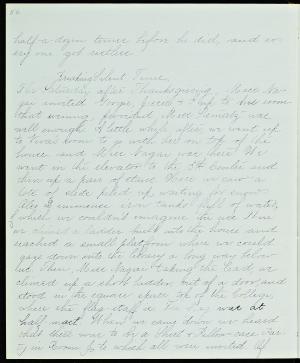 half-a-dozen times before he did, and ev-
ery one got restless.
Breaking Silent Time.
The Saturday after Thanksgiving, Miss Na-
gai invited Grope, &
that evening, provided Miss was
well enough. A little while after, we went up
to room to go with her on top of the
house and Miss Nagai was there. We
went in the elevator to the 5th Center and
then up a pair of stairs. There we saw
lots of sleds piled up waiting for snow.
Also, 2 immense iron tanks full of water,
which we couldn't imagine the use. Here
we climed a ladder built into the house and
reached a small platform where we could
gaze down into the library a long way below
us. Then, Miss Nagai taking the lead, we
climed up a short ladder, out of a door and
stood in the square space top of the College,
where the flag staff is. The flag was at
half mast. When we came down we heard
that there was to be a
in Room J to which all were invited. At